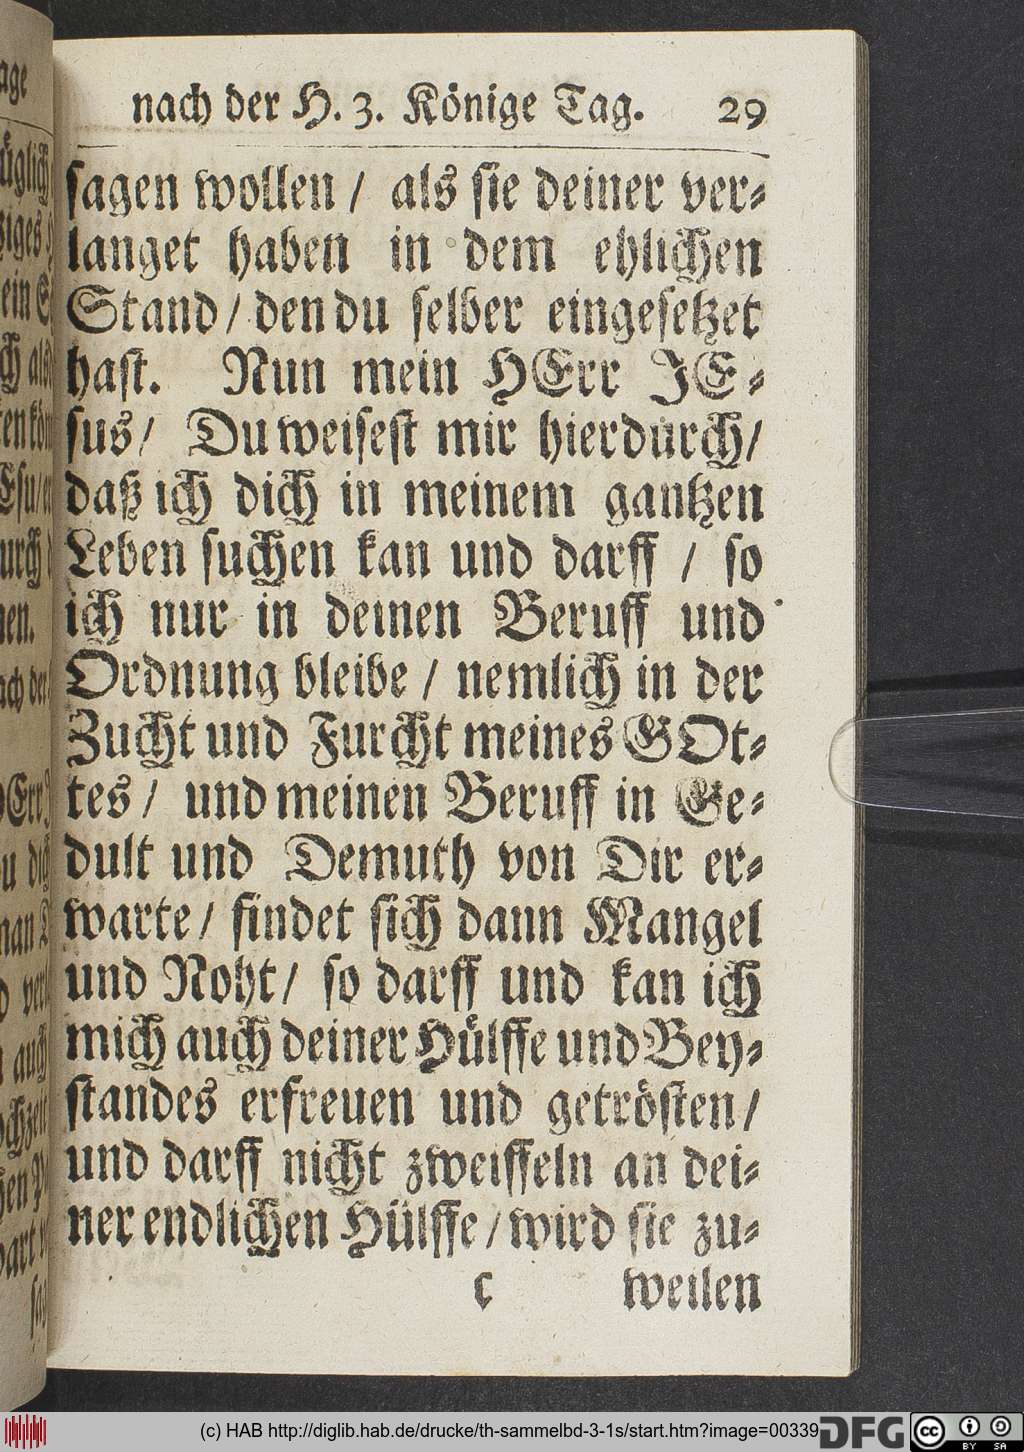 nach der H. 3. Könige Tag. 29
sagen wollen / als sie deiner ver-
langet haben in dem ehlichen
Stand / den du selber eingesetzet
hast. Nun mein HErr JE-
sus / Du weisest mir hierdurch /
daß ich dich in meinem gantzen
Leben suchen kan und darff / so
ich nur in deinen Beruff und
Ordnung bleibe / nemlich in der
Zucht und Furcht meines GOt-
tes / und meinen Beruff in Ge-
dult und Demuth von Dir er-
warte / findet sich dann Mangel
und Noht / so darff und kan ich
mich auch deiner Hülffe und Bey-
standes erfreuen und getrösten /
und darff nicht zweiffeln an dei-
ner endlichen Hülffe / wird sie zu-
c weilen
(c) HAB http://diglib.hab.de/drucke/th-sammelbd-3-1s/start.htm?image=00339
DFG
cc BY SA